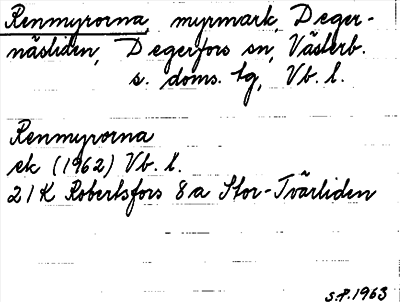 Renmyrorna, myrmark, Deger-
näsliden, Degerfors sn, Västerb.
s. doms. tg, Vb. l.
Renmyrorna
ek (1962) Vb. l.
21K Robertsfors 8a Stor-Tvärliden
S.P. 1963